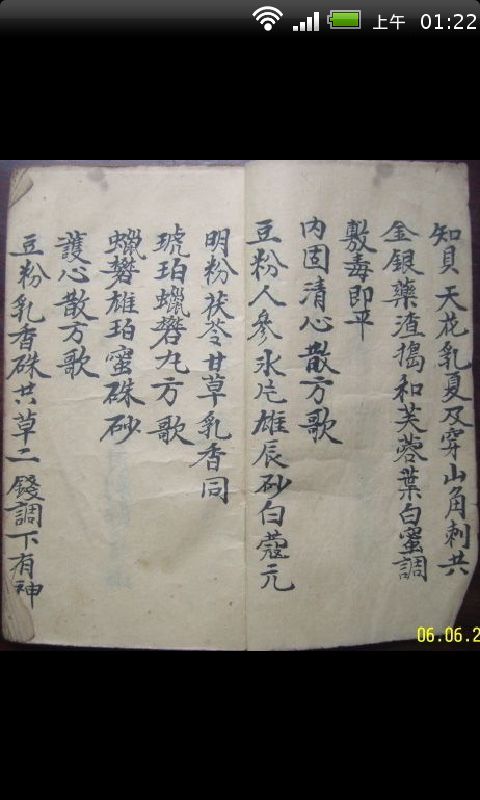 上午 01:22
知貝天花乳夏及穿山角刺共
金銀藥渣搗和芙蓉葉白蜜調
敷毒即平
内固清心散方歌
豆粉人參氷片雄辰砂白蔻元
明粉茯苓甘草乳香同
琥珀蠟礬丸方歌
蠟礬雄珀蜜硃砂
護心散方歌
豆粉乳香硃共草二錢調下有神
06.06.2